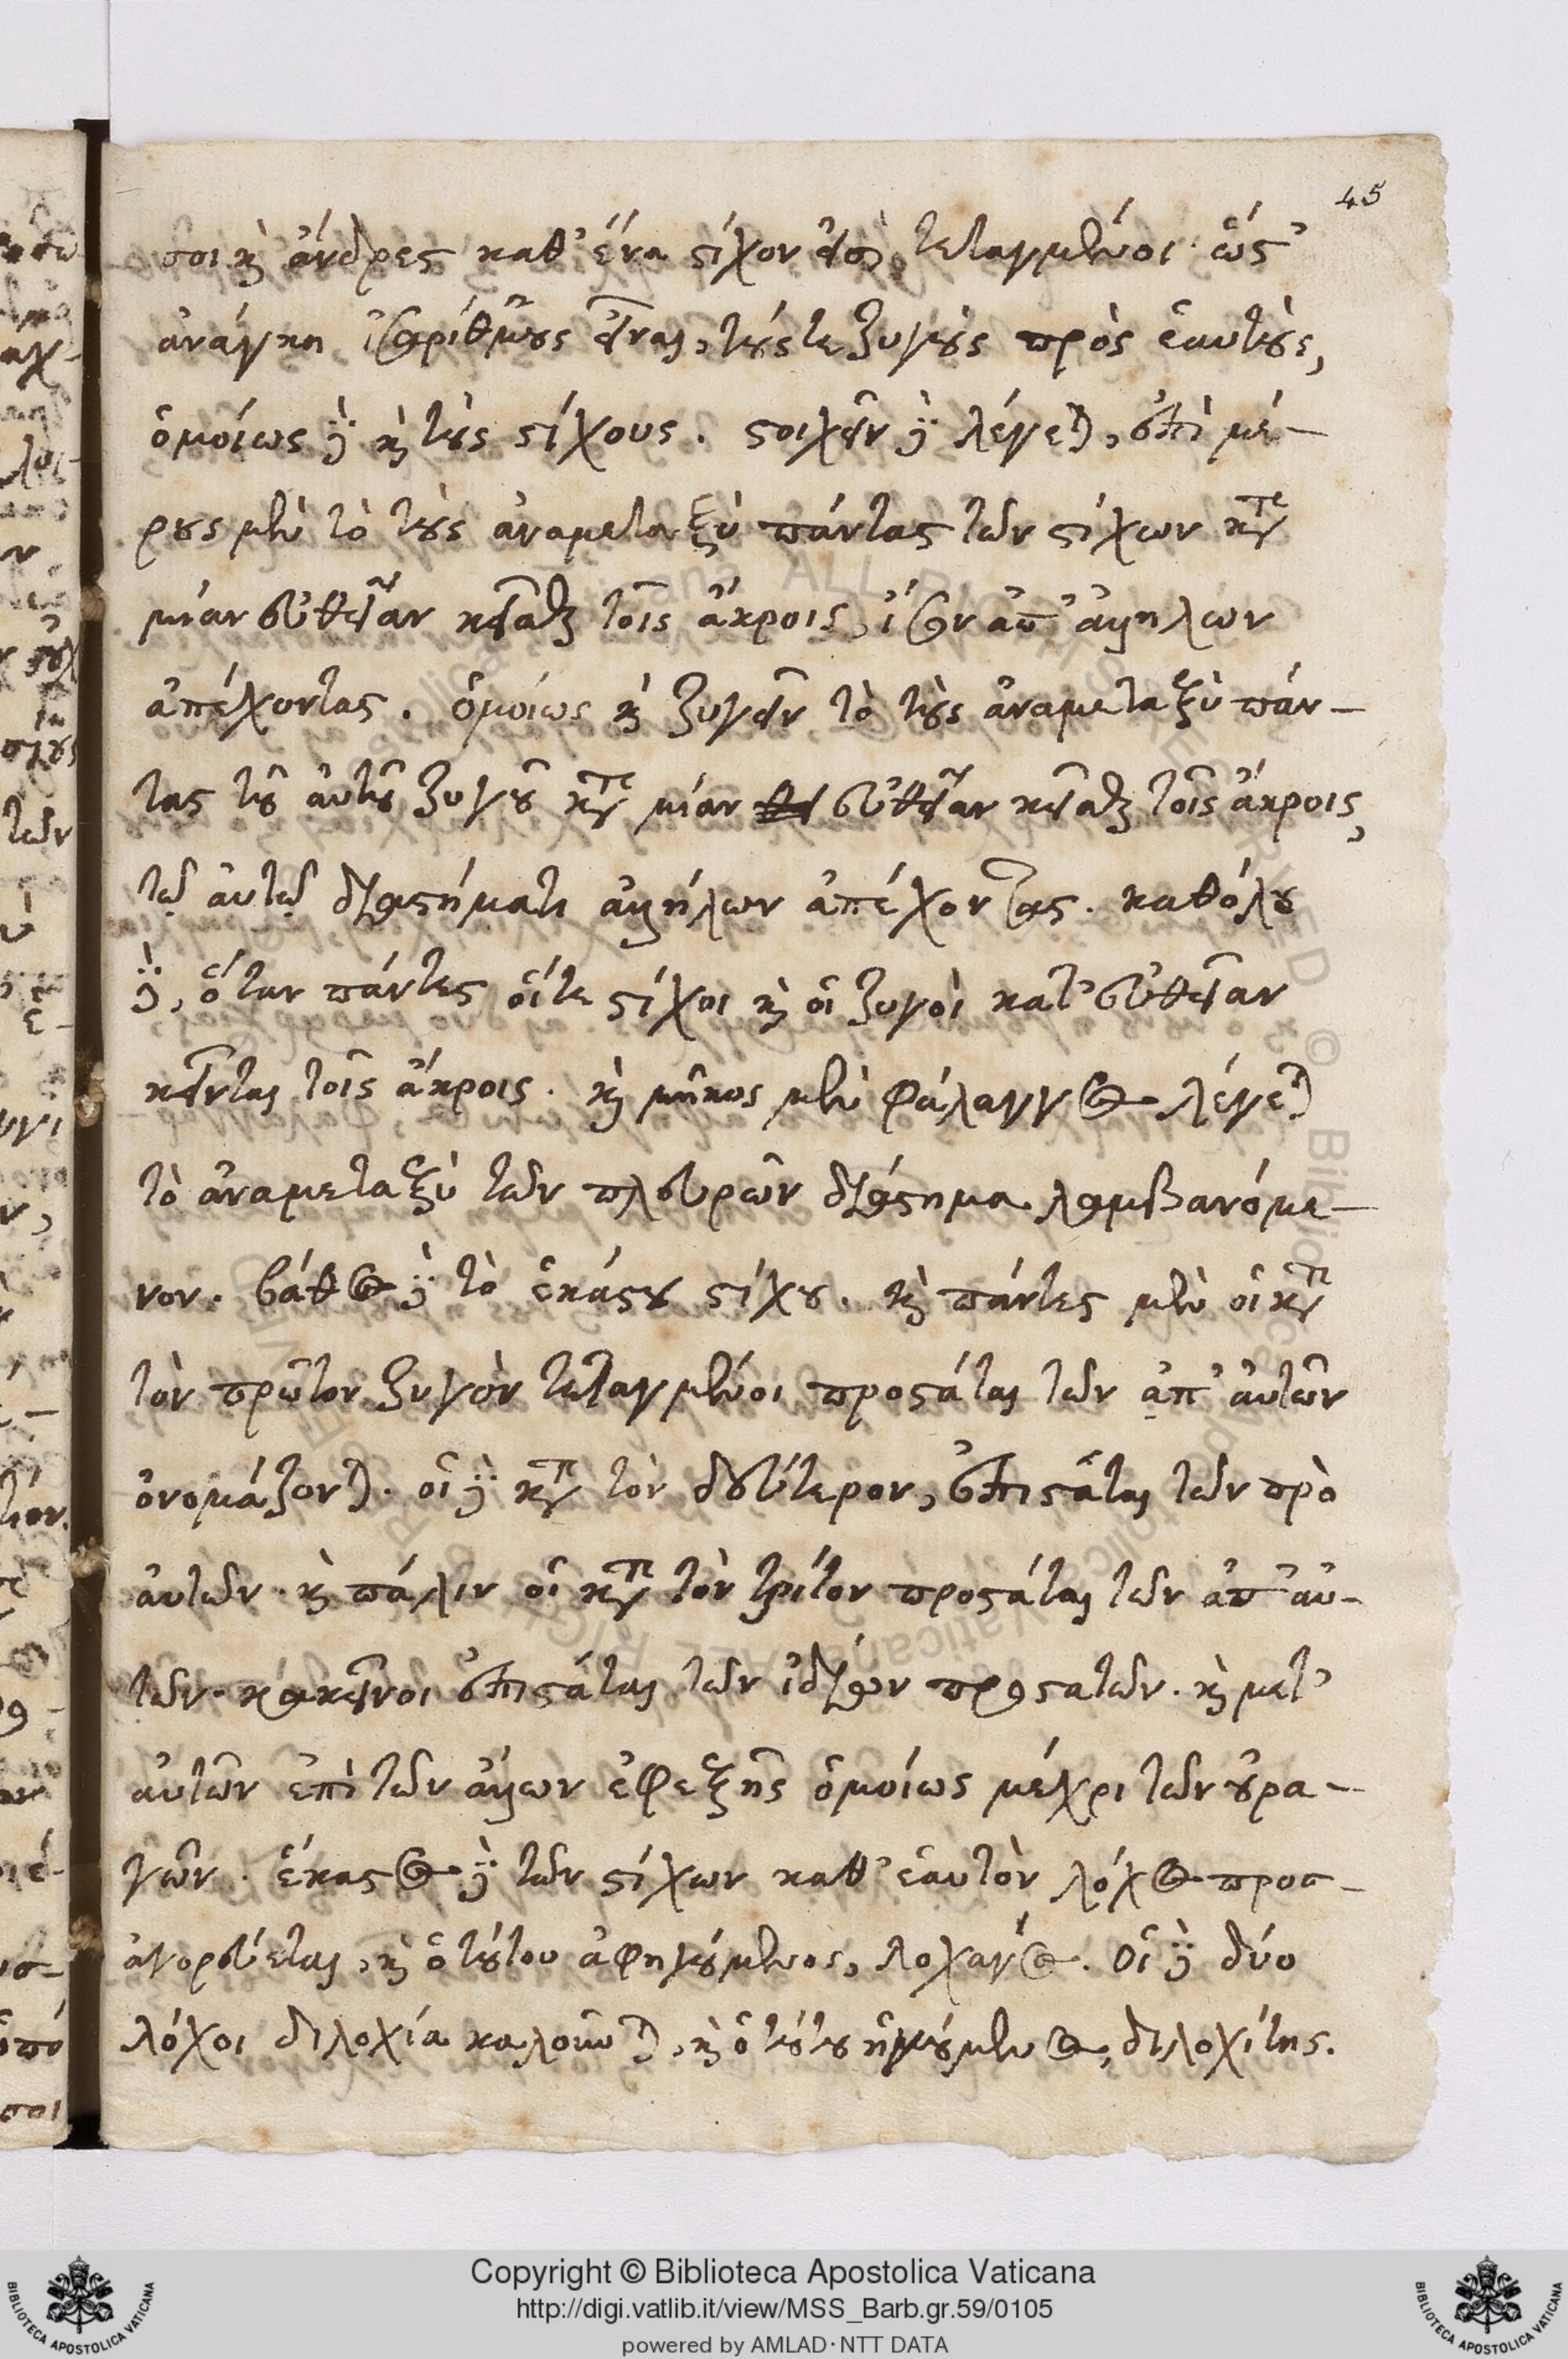 45
σοι καὶ ἄνδρες καθ' ἕνα στίχον εἰσὶ τεταγμένοι. ὥστ'
ἀνάγκη ἰσαρίθμους εἶναι, τούς τε ζυγοὺς πρὸς ἑαυτούς,
ὁμοίως δὲ καὶ τοὺς στίχους. στοιχεῖν δὲ λέγεται, ἐπὶ μέ-
ρους μὲν τὸ τοὺς ἀναμεταξὺ πάντας τῶν στίχων κατὰ
μίαν εὐθεῖαν κεῖσθαι τοῖς ἄκροις, ἴσον ἀπ' ἀλλήλων
ἀπέχοντας. ὁμοίως καὶ ζυγεῖν τὸ τοὺς ἀναμεταξὺ πάν-
τας τοῦ αὐτοῦ ζυγοῦ κατὰ μίαν εὐθεῖαν κεῖσθαι τοῖς ἄκροις,
τῷ αὐτῷ διαστήματι ἀλλήλων ἀπέχοντας. καθόλου
δὲ, ὅταν πάντες οἵ τε στίχοι καὶ οἱ ζυγοὶ κατ' εὐθεῖαν
κεῖνται τοῖς ἄκροις. καὶ μῆκος μὲν φάλαγγος λέγεται
τὸ ἀναμεταξὺ τῶν πλευρῶν διάστημα λαμβανόμε-
νον. βάθος δὲ τὸ ἑκάστου στίχου. καὶ πάντες μὲν οἱ κατὰ
τὸν πρῶτον ζυγὸν τεταγμένοι προστάται τῶν ἀπ' αὐτῶν
ὀνομάζονται. οἱ δὲ κατὰ τὸν δεύτερον, ἐπιστάται τῶν πρὸ
αὐτῶν. καὶ πάλιν οἱ κατὰ τὸν τρίτον προστάται τῶν ἀπ' αὐ-
τῶν. κἀκεῖνοι ἐπιστάται τῶν ἰδίων προστατῶν. καὶ μετ'
αὐτῶν ἐπὶ τῶν ἄλλων ἐφεξῆς ὁμοίως μέχρι των οὐρα-
γῶν. ἕκαστος δὲ τῶν στίχων καθ' ἑαυτὸν λόχος προσ-
αγορεύεται, καὶ ὁ τούτου ἀφηγούμενος, λοχαγός. οἱ δὲ δύο
λόχοι διλοχία καλοῦνται, καὶ ὁ τούτου ἡγούμενος, διλοχίτης.
Copyright © Biblioteca Apostolica Vaticana
http://digi.vatlib.it/view/MSS_Barb.gr.59/0105
powered by AMLAD·NTT DATA